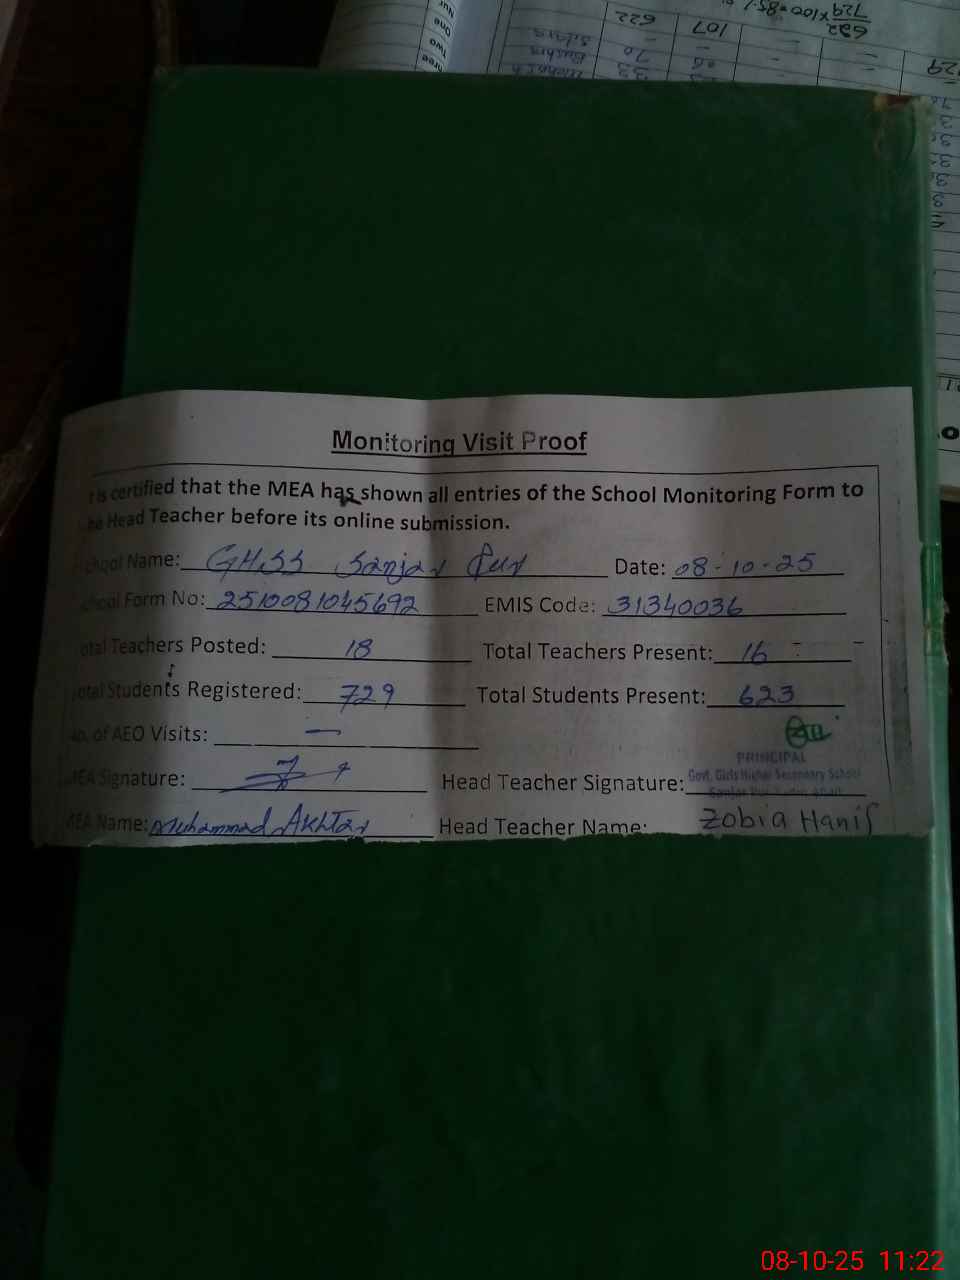 622
107
Monitoring Visit Proof
It is certified that the MEA has shown all entries of the School Monitoring Form to
the Head Teacher before its online submission.
School Name: GHSS Sanjar Pur Date: 08-10-25
School Form No: 2510081045692 EMIS Code: 31340036
Total Teachers Posted: 18 Total Teachers Present: 16
Total Students Registered: 729 Total Students Present: 623
No. of AEO Visits: —
PRINCIPAL
MEA Signature: Head Teacher Signature: Govt. Girls Higher Secondary School
MEA Name: Muhammad Akhtar Head Teacher Name: Zobia Hanif
08-10-25 11:22